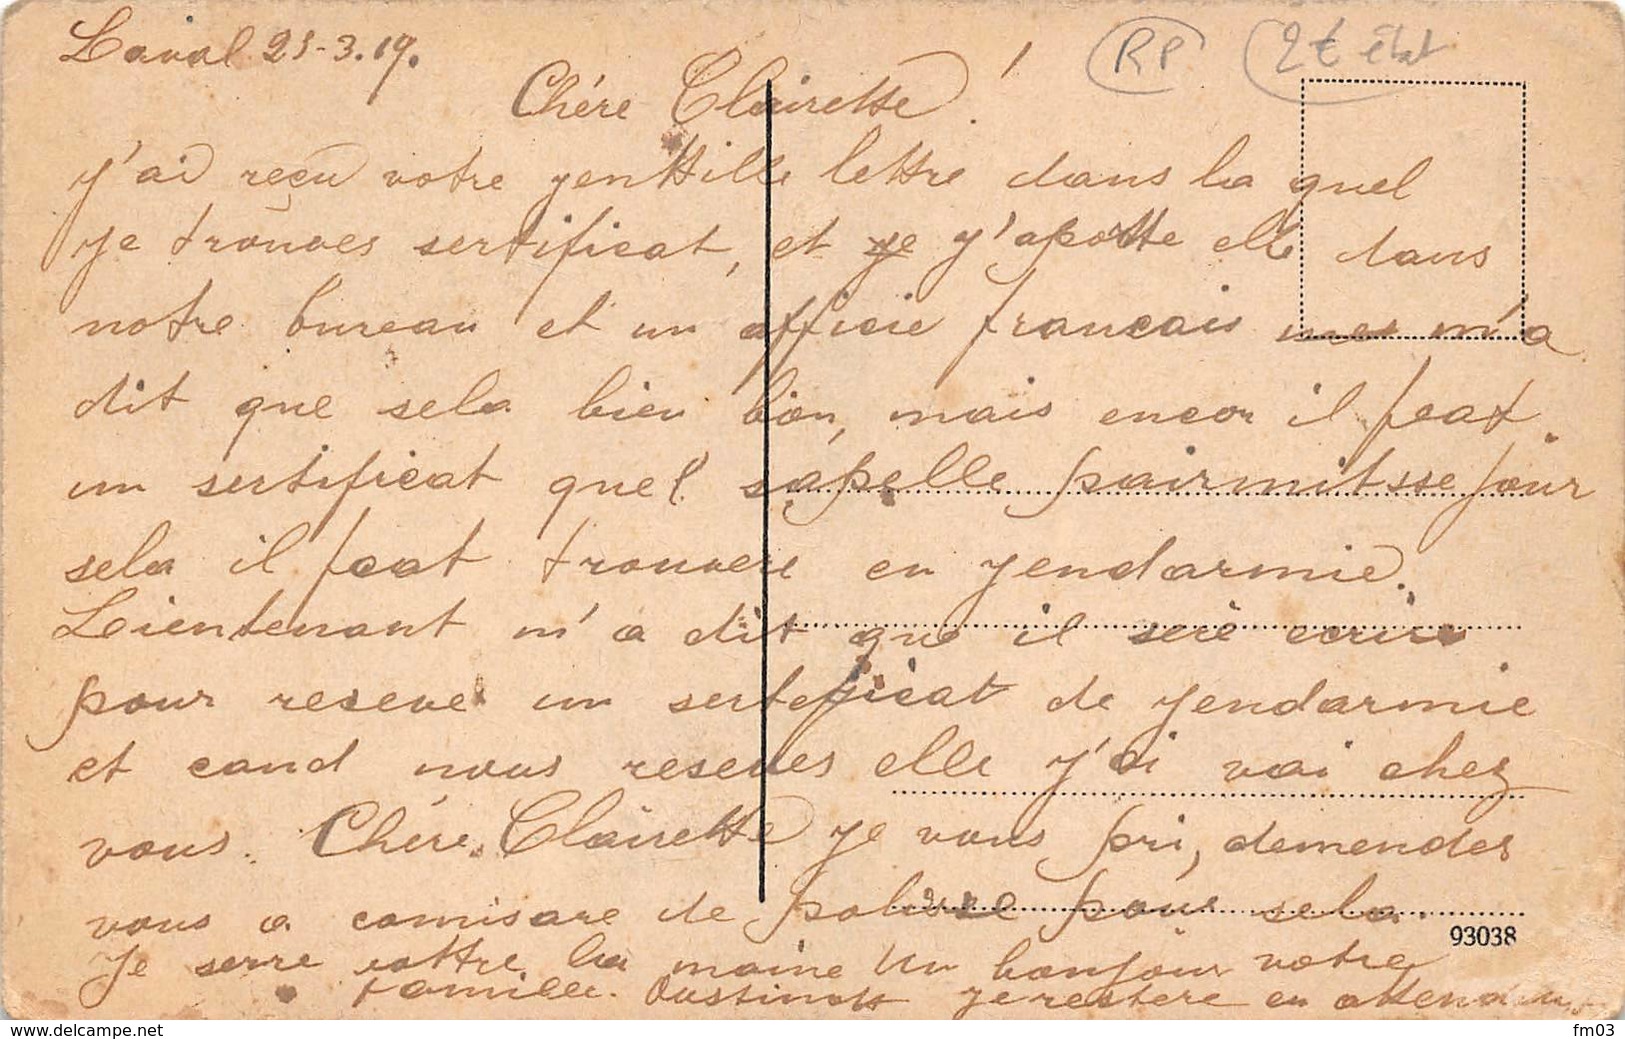 Laval 25-3.19.
RP 2€ état
Chére Clairette !
j'ai reçu votre genttille lettre dans la quel
je trouves sertificat, et je j'aportte elle dans
notre bureau et un afficie francais me m'a
dit que sela bien bon, mais encor il feat
un sertificat quel sapelle pairmitsse jour
sela il feat trouvere en jendarmie.
Leientenant m'a dit que il seré ecrire
pour reseve un sertefieat de jendarmie
et cand nous reseves elle j'ai vai chez
vous. Chére Clairette je vous pri, demendes
vous a comisare de polisse pour sela.
Je serre vottre la maine Un bonjour votre
famille. je restere en attendan
93038
www.delcampe.net
fm03